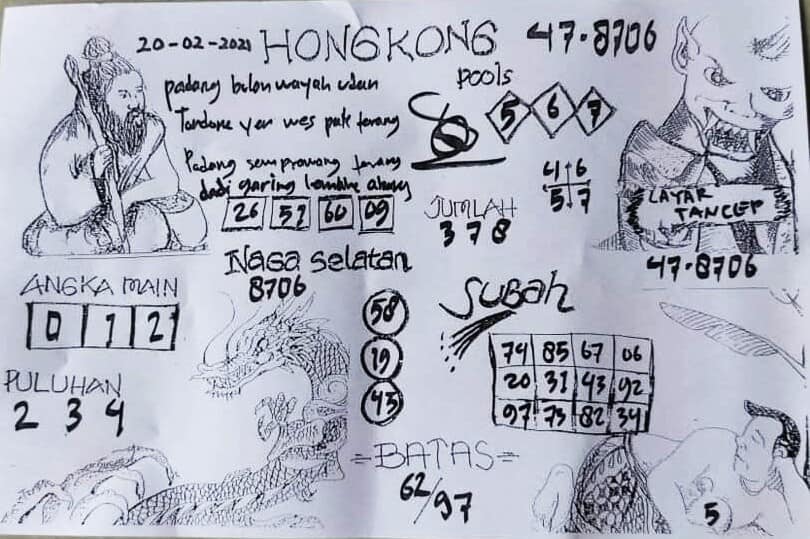 20-02-2021 HONGKONG 47-8706
pools
padang bulan wayah udan
Tandane yen wes pak terang
Padang semprawang terang
dadi garing
5 6 7
4 6
5 7
26 51 60 09
JUMLAH
3 7 8
LAYAR
TANCEP
47-8706
Naga Selatan
8706
ANGKA MAIN
0 1 2
PULUHAN
2 3 4
58
19
43
SUBAH
74 85 67 06
20 31 43 92
97 73 82 34
=BATAS=
62/97
5